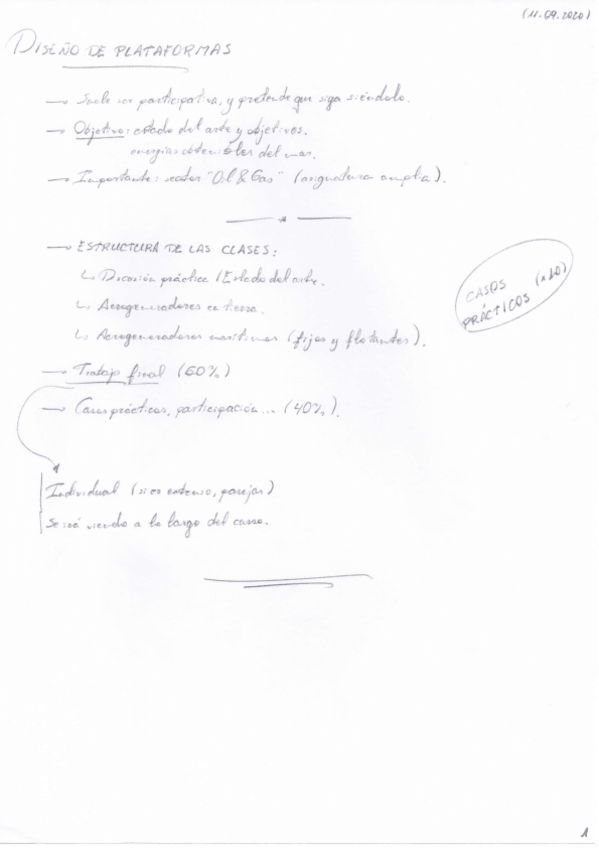 (11.09.2020)
DISEÑO DE PLATAFORMAS
→ Suele ser participativa, y pretende que siga siéndolo.
→ Objetivo: estado del arte y objetivos.
energías obtenibles del mar.
→ Importante: sector "Oil & Gas" (asignatura amplia).
→ ESTRUCTURA DE LAS CLASES:
↳ Discusión práctica / Estado del arte.
↳ Aerogeneradores en tierra.
↳ Aerogeneradores marítimos (fijos y flotantes).
CASOS (x10)
PRÁCTICOS
→ Trabajo final (60%)
→ Casos prácticos, participación... (40%).
Individual (si es extenso, parejas)
Se irá viendo a lo largo del curso.
1